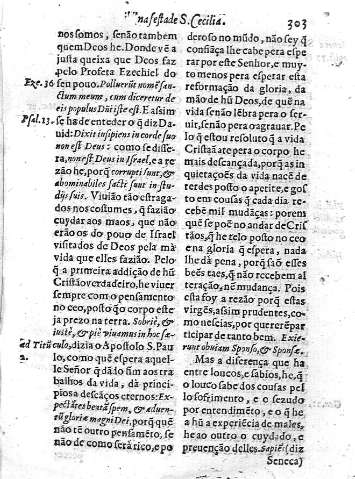 na festa de S. Cecilia. 303
nos somos, senão tambem
quem Deos he. Donde vẽ a
justa queixa que Deos faz
pelo Profeta Ezechiel do
Eze. 36 seu pouo. Polluerũt nomẽ san-
ctum meum, cum diceretur de
eis populus Dñi iste est. E assim
Psal. 13. se ha de entẽder o q̃ diz Da-
uid: Dixit insipiens in corde suo
non est Deus: como se disse-
ra, non est Deus in Israel, e a re-
zão he, porq̃ corrupti sunt, &
abominabiles facti sunt in stu-
dijs suis. Viuião tão estraga-
dos nos costumes, q̃ fazião
cuydar aos maos, que não
erão os do pouo de Israel
visitados de Deos pela má
vida que elles fazião. Pelo
q̃ a primeira addição de hũ
Cristão verdadeiro, he viuer
sempre com o pensamento
no ceo, posto q̃ o corpo este
ja prezo na terra. Sobriè, &
iustè, & piè viuamus in hoc sæ-
ad Tit culo, dizia o Apostolo S. Pau
2. lo, como que espera aquel-
le Señor q̃ dá fo fim aos tra
balhos da vida, dá princi-
pio a descãços eternos: Ex-
pectãtes beatã spem, & aduen
tũ gloriæ magni Dei, porq̃ quẽ
não tẽ outro pensamẽto, se
não de como será rico, e po
deroso no mũdo, não sey q̃
cõfiãça lhe cabe pera espe
rar por este Senhor, e muy-
to menos pera esperar esta
reformação da gloria, da
mão de hũ Deos, de quẽ na
vida senão lẽbra pera o ser-
uir, senão pera o agrauar. Pe
lo q̃ estou resoluto q̃ a vida
Cristãa te pera o corpo he
mais descançada, porq̃ as in
quietaçoẽs da vida nacẽ de
terdes posto o apetite, e gos
to em cousas q̃ cada dia re-
cebẽ mil mudãças: porem
quẽ se poẽ no andar de Cris
tãos, q̃ he telo posto no ceo
e na gloria q̃ espera, nada
lhe dá pena, porq̃ saõ esses
bẽs taes, q̃ não recebem al
teração, nẽ mudança. Pois
esta foy a rezão porq̃ estas
virgẽs, assim prudentes, co-
mo nescias, por quererẽ par
ticipar de tanto bem. Exie-
runt obuiam Sponso, & Sponsæ.
Mas a diferença que ha
entre loucos, e sabios, he, q̃
o louco sabe dos cousas pe-
lo sofrimento, e o sezudo
por entendimẽto, e o q̃ he
a hũ a experiẽcia de males,
he ao outro o cuydado, e
preuenção delles. Sapiẽs (diz
Seneca)